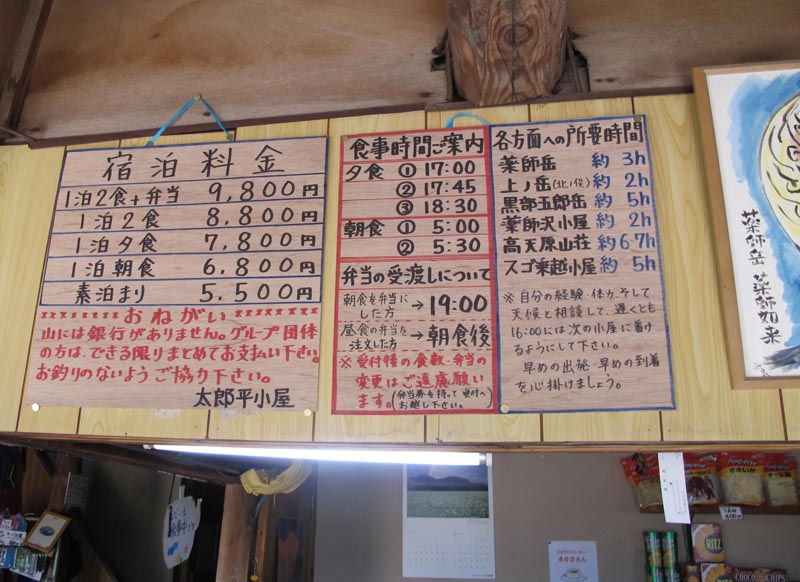 宿泊料金
1泊2食+弁当 9,800円
1泊2食 8,800円
1泊夕食 7,800円
1泊朝食 6,800円
素泊まり 5,500円
おねがい
山には銀行がありません。グループ団体
の方は、できる限りまとめてお支払い下さい。
お釣りのないようご協力下さい。
太郎平小屋
食事時間ご案内
夕食 ① 17:00
② 17:45
③ 18:30
朝食 ① 5:00
② 5:30
弁当の受渡しについて
朝食を弁当に
した方 → 19:00
昼食の弁当を
注文した方 → 朝食後
※受付後の食数・弁当の
変更はご遠慮願い
ます。(弁当券を持って受付へ
お越し下さい。)
各方面への所要時間
薬師岳 約3h
上ノ岳(北ノ俣) 約2h
黒部五郎岳 約5h
薬師沢小屋 約2h
高天原山荘 約6・7h
スゴ乗越小屋 約5h
※自分の経験・体力、そして
天候と相談して、遅くとも
16:00には次の小屋に着け
るようにして下さい。
早めの出発・早めの到着
を心掛けましょう。
薬師岳 薬師如来
RITZ
CHOCO CHIPS